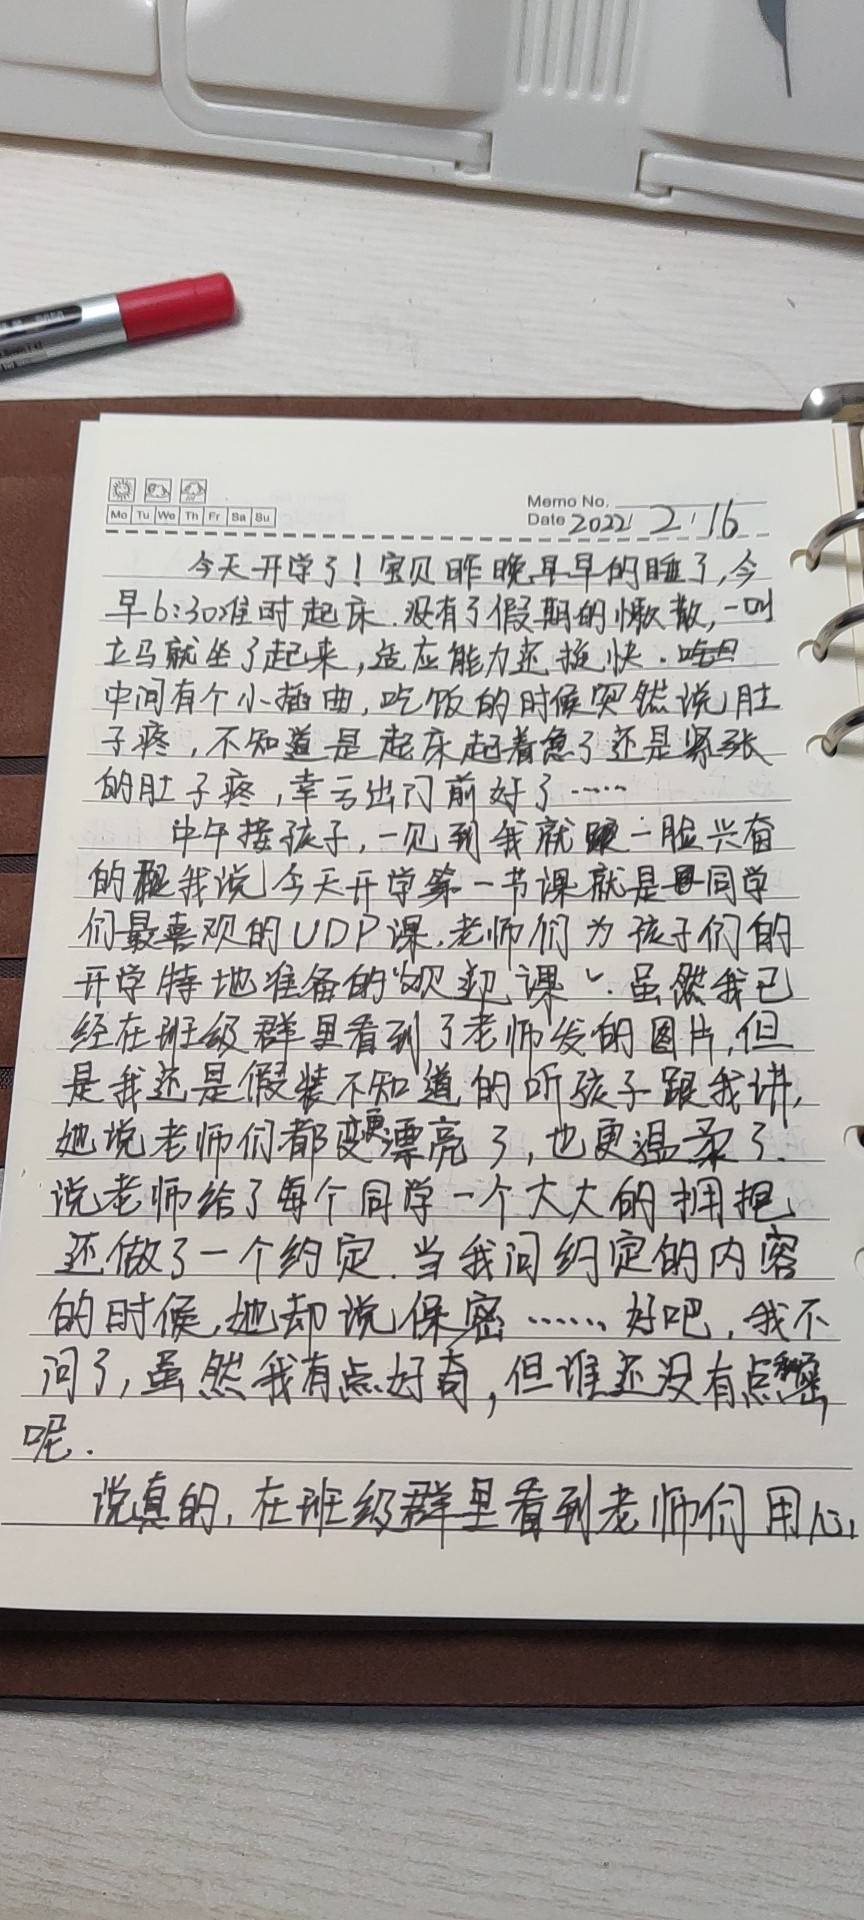 Memo No.
Mo Tu We Th Fr Sa Su
Date 2022 2 16
今天开学了！宝贝昨晚早早的睡了，今
早6:30准时起床.没有了假期的懒散,一叫
立马就坐了起来，适应能力还挺快.
中间有个小插曲，吃饭的时候突然说肚
子疼，不知道是起床起着急了还是紧张
的肚子疼，幸亏出门前好了……
中午接孩子，一见到我就一脸兴奋
的跟我说今天开学第一节课就是同学
们最喜欢的UDP课.老师们为孩子们的
开学特地准备的“欢迎课”.虽然我已
经在班级群里看到了老师发的图片,但
是我还是假装不知道的听孩子跟我讲,
她说老师们都变更漂亮了，也更温柔了.
说老师给了每个同学一个大大的拥抱
还做了一个约定.当我问约定的内容
的时候,她却说保密……好吧，我不
问了，虽然我有点好奇，但谁还没有点秘密
呢.
说真的，在班级群里看到老师们用心